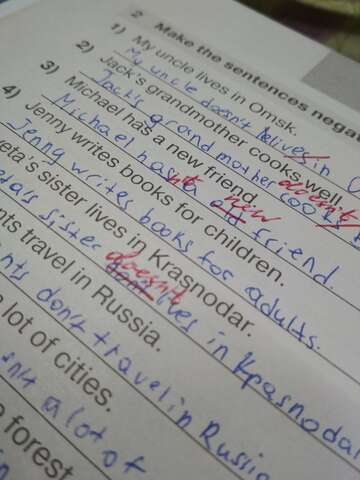 2 Make the sentences negat
1) My uncle lives in Omsk.
My uncle doesn't lives in
2) Jack's grandmother cooks well.
Jack's grandmother doesn't cooks
3) Michael has a new friend.
Michael hasn't a new friend.
4) Jenny writes books for children.
Jenny writes books for adults.
eta's sister lives in Krasnodar.
eta's sister doesn't lives in Krasnodar
nts travel in Russia.
nts don't travel in Russia
lot of cities.
n't a lot of
forest